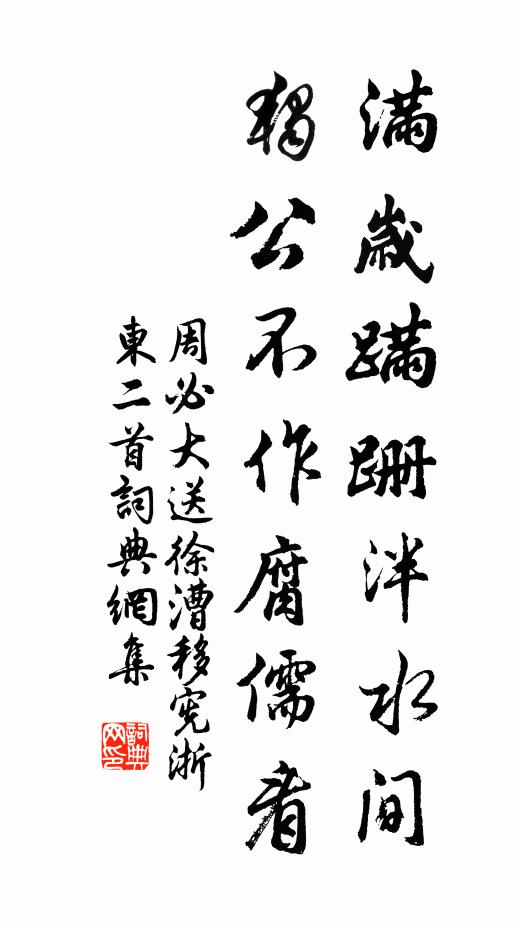 滿歲蹣跚泮水间
獨公不作腐儒看
周必大送徐漕移宪浙
東二首詞典網集
詞典网印